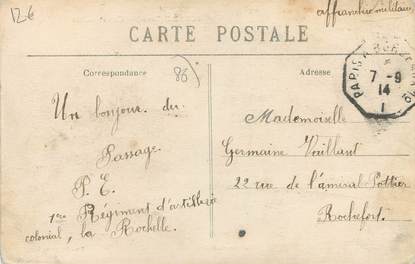 126
affranchie militaire
CARTE POSTALE
Correspondance
Adresse
86
PARIS A
7-9
14
1
Un bonjour du
Passage
P. E.
1er Régiment d'artillerie
colonial, la Rochelle.
Mademoiselle
Germaine Vaillant
22 rue de l'amiral Pottier
Rochefort.